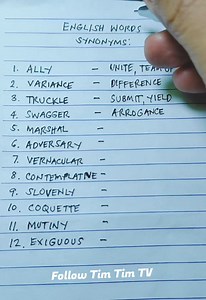 ENGLISH WORDS
SYNONYMS:
1. ALLY - UNITE, TEAM UP
2. VARIANCE - DIFFERENCE
3. TRUCKLE - SUBMIT, YIELD
4. SWAGGER - ARROGANCE
5. MARSHAL -
6. ADVERSARY -
7. VERNACULAR -
8. CONTEMPLATIVE -
9. SLOVENLY -
10. COQUETTE -
11. MUTINY -
12. EXIGUOUS -
Follow Tim Tim TV